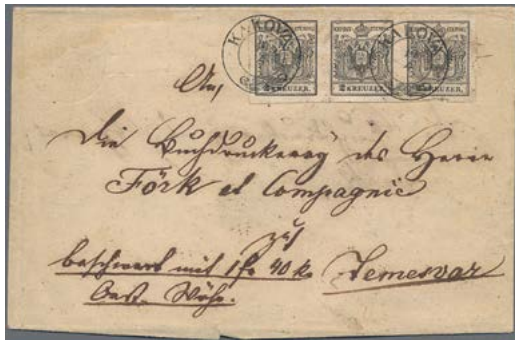 KAKOVA KAKOVA
2 KREUZER. 2 KREUZER. 2 KREUZER.
An,
die Buchdruckerey des Herrn
Förk et Compagnie
zu
beschwert mit 1 fr 40 k. Temesvar
Oest. Währ.